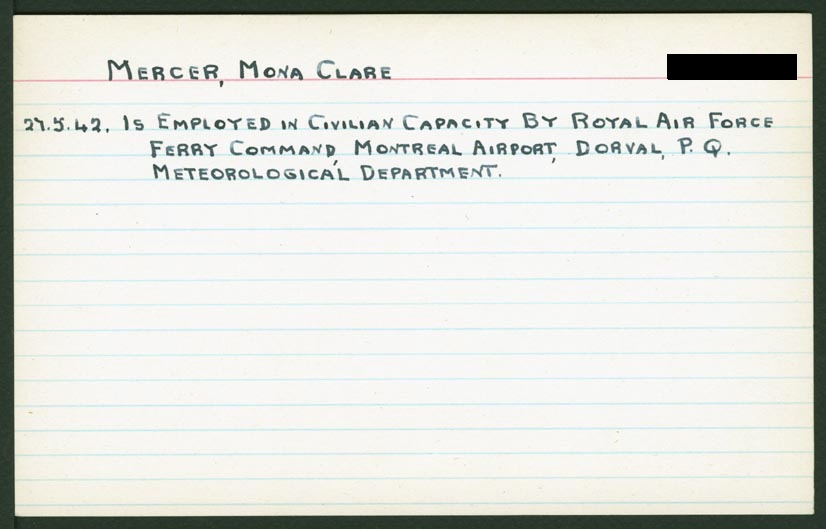 MERCER, MONA CLARE
27.5.42. IS EMPLOYED IN CIVILIAN CAPACITY BY ROYAL AIR FORCE
FERRY COMMAND, MONTREAL AIRPORT, DORVAL, P.Q.
METEOROLOGICAL DEPARTMENT.